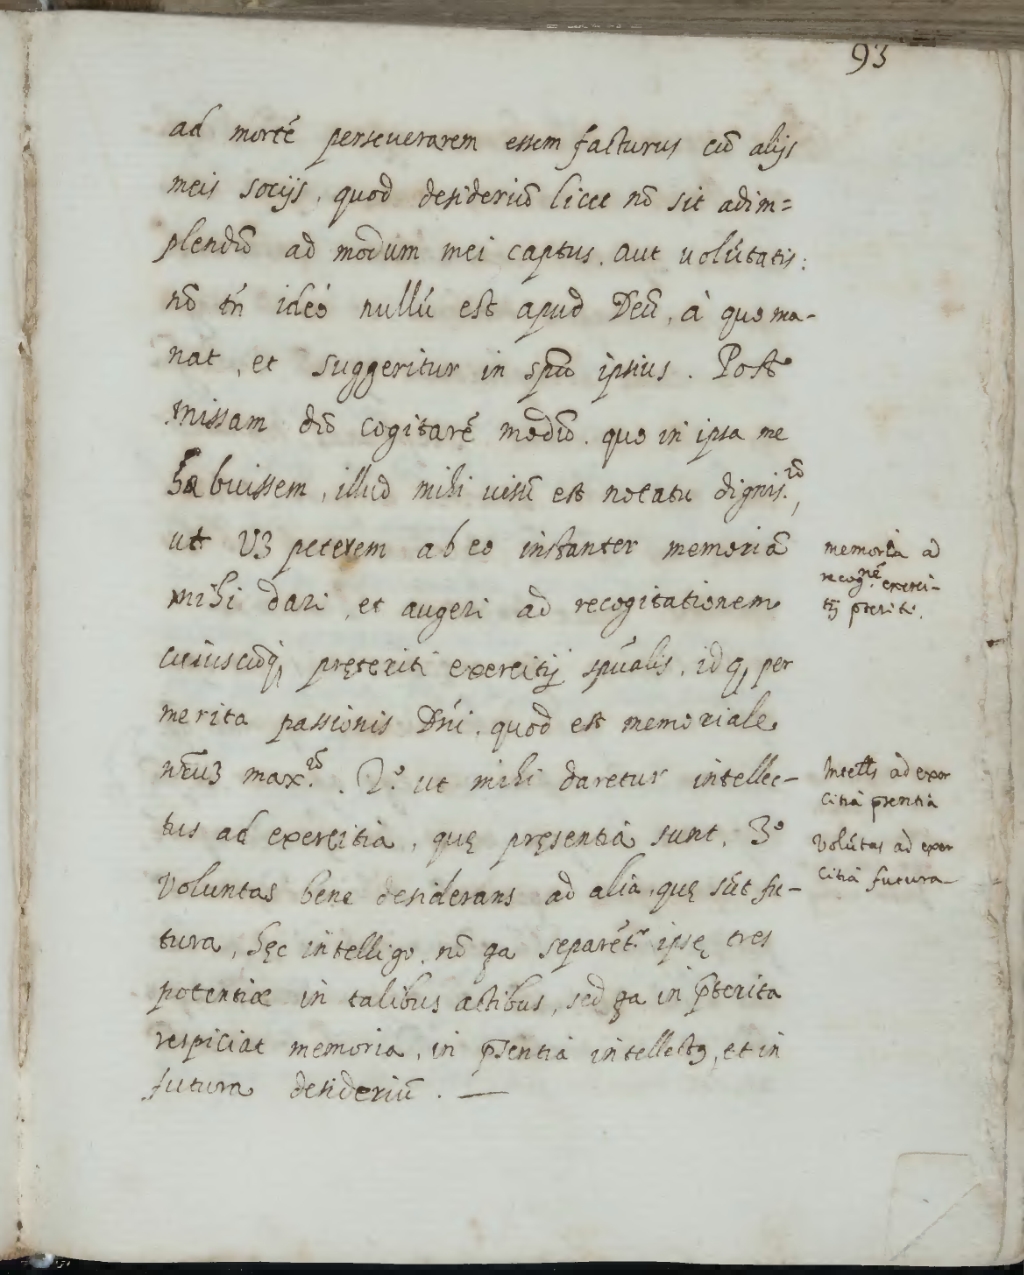 93
ad mortē perseuerarem essem facturus cū alijs
meis socijs, quod desideriū licet nō sit adim=
plendū ad modum mei captus, aut volūtatis:
nō tñ ideò nullū est apud Deū, à quo ma-
nat, et suggeritur in spū ipsius. Post
missam dū cogitarē modū, quo in ipsa me
habuissem, illud mihi uisū est notatu dignis.ᵐū,
ut vꝫ peterem ab eo instanter memoriā
mihi dari, et augeri ad recogitationem
cuiuscūqꝫ pręteriti exercitij spūalis, idqꝫ per
merita passionis Dńi, quod est memoriale
max.ᵐū. 2.º ut mihi daretur intellec-
tus ad exercitia, quę pręsentia sunt, 3º
Voluntas bene desiderans ad alia, quę sūt fu-
tura, hęc intelligo, nō qa separēt.ʳ ipsę tres
potentiæ in talibus actibus, sed qa in p̄terita
respiciat memoria, in p̄sentia intellectꝰ, et in
futura desideriū. —
memoria ad
recog.ⁿē exerci-
tij p̄teriti.
Intellꝰ ad exer
citia p̄sentia
Volūtas ad exer
citia futura